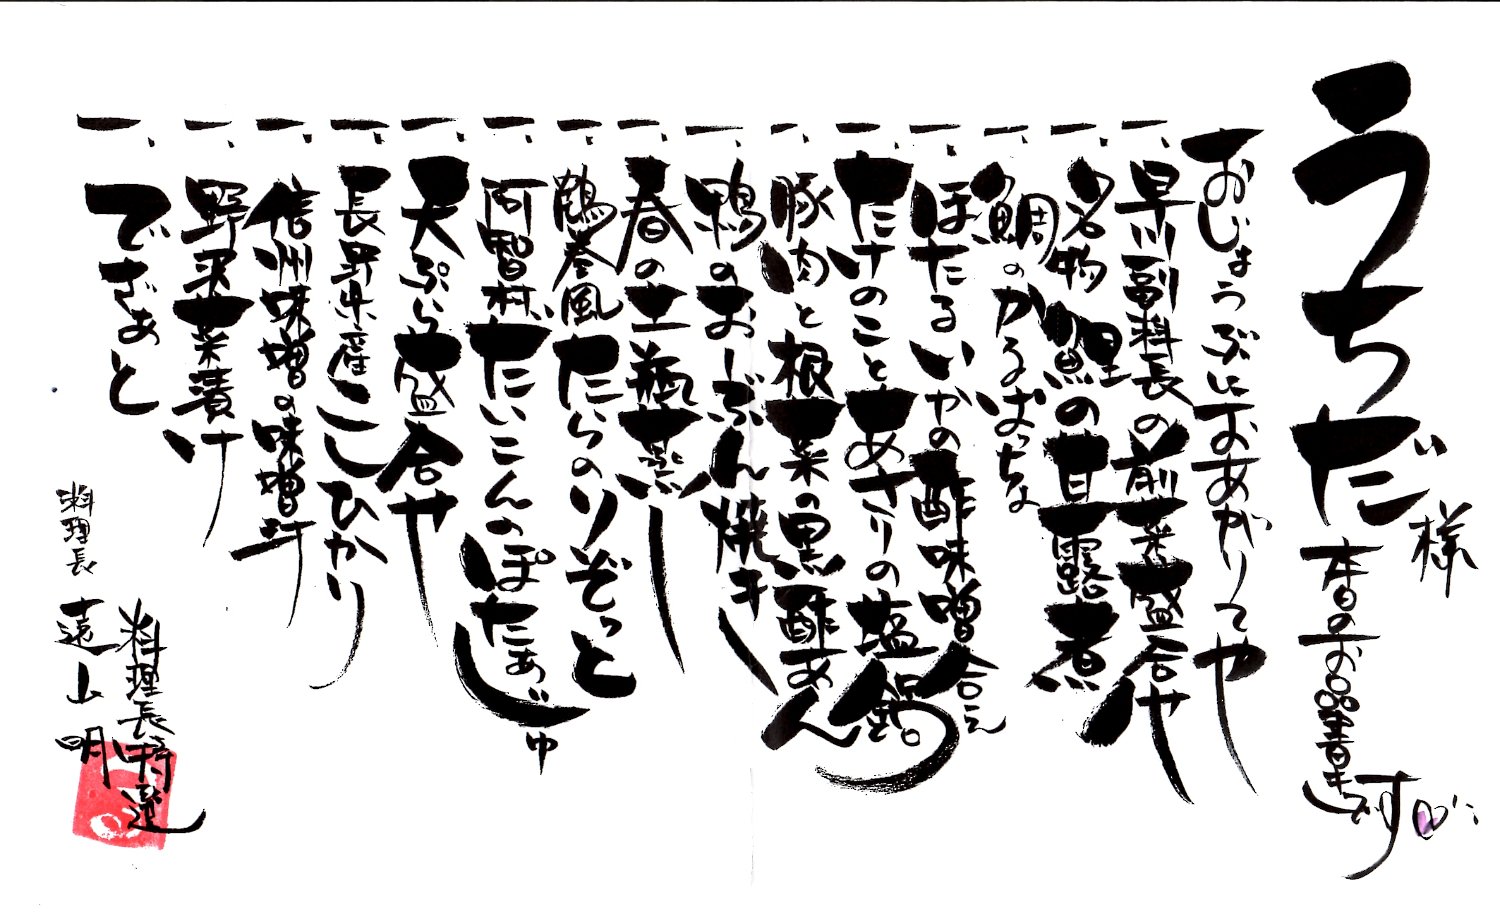 うちだ様 本日のお品書きです
おじょうぶにおあがりてや
一、早川副料長の前菜盛合や
一、名物鯉の甘露煮
一、鯛のかるぱっちょ
一、ほたるいかの酢味噌合え
一、たけのことあさりの塩鍋。
一、豚肉と根菜の黒酢あん
一、鴨のおーぶん焼き
一、春の土瓶蒸し
一、鶴巻風たらのりぞっと
一、阿智村だいこんのぽたあじゅ
一、天ぷら盛合や
一、長野県産こしひかり
一、信州味噌の味噌汁
一、野沢菜漬け
一、でざあと
料理長特選
料理長 遠山明